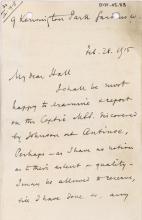 9 Kennington Park Gardens
Feb. 28. 1915
My dear Hall
I shall be most
happy to examine & report
on the Coptic MSS. discovered
by Johnson at Antinoe,
Perhaps – as I have no notion
as to their extent or quality –
I may be allowed to reserve,
till I have done so, any